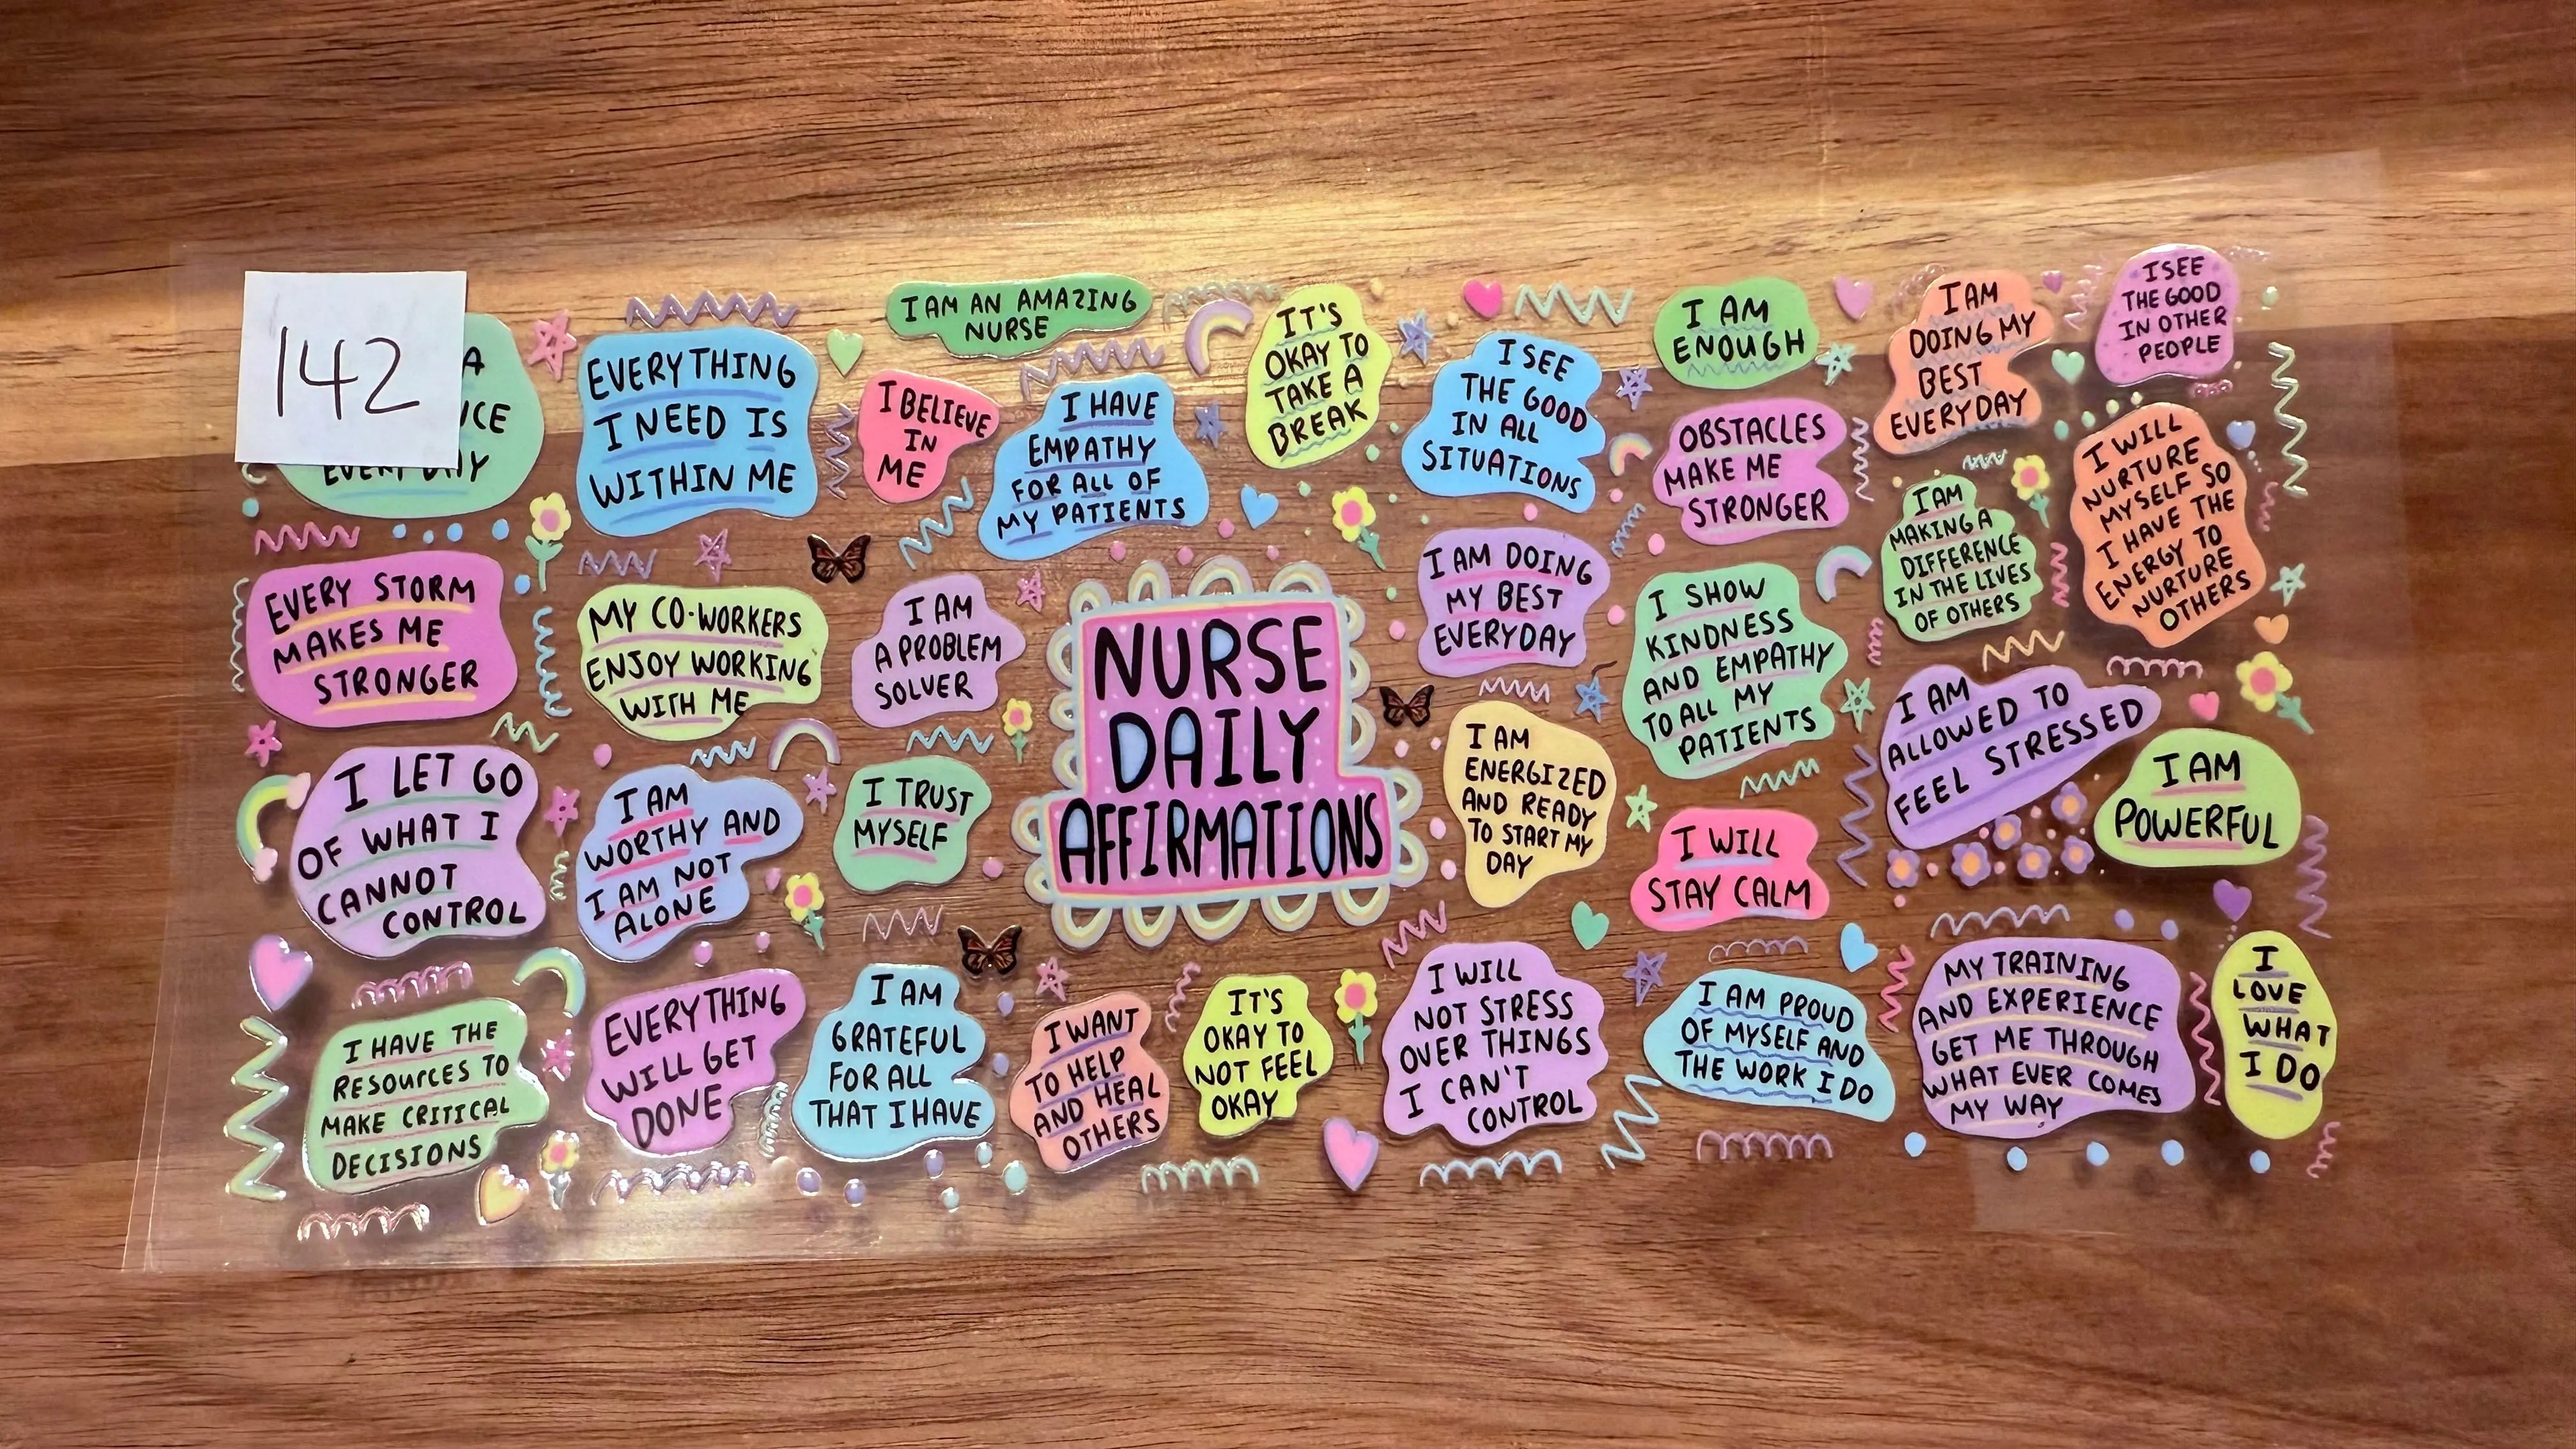 142
A
NCE
EVERY DAY
EVERYTHING
I NEED IS
WITHIN ME
I AM AN AMAZING
NURSE
I BELIEVE
IN
ME
I HAVE
EMPATHY
FOR ALL OF
MY PATIENTS
IT'S
OKAY TO
TAKE A
BREAK
I SEE
THE GOOD
IN ALL
SITUATIONS
I AM
ENOUGH
I AM
DOING MY
BEST
EVERYDAY
I SEE
THE GOOD
IN OTHER
PEOPLE
OBSTACLES
MAKE ME
STRONGER
I WILL
NURTURE
MYSELF SO
I HAVE THE
ENERGY TO
NURTURE
OTHERS
I AM
MAKING A
DIFFERENCE
IN THE LIVES
OF OTHERS
EVERY STORM
MAKES ME
STRONGER
MY CO-WORKERS
ENJOY WORKING
WITH ME
I AM
A PROBLEM
SOLVER
NURSE
DAILY
AFFIRMATIONS
I AM DOING
MY BEST
EVERYDAY
I SHOW
KINDNESS
AND EMPATHY
TO ALL MY
PATIENTS
I AM
ALLOWED TO
FEEL STRESSED
I AM
POWERFUL
I LET GO
OF WHAT I
CANNOT
CONTROL
I AM
WORTHY AND
I AM NOT
ALONE
I TRUST
MYSELF
I AM
ENERGIZED
AND READY
TO START MY
DAY
I WILL
STAY CALM
I HAVE THE
RESOURCES TO
MAKE CRITICAL
DECISIONS
EVERYTHING
WILL GET
DONE
I AM
GRATEFUL
FOR ALL
THAT I HAVE
I WANT
TO HELP
AND HEAL
OTHERS
IT'S
OKAY TO
NOT FEEL
OKAY
I WILL
NOT STRESS
OVER THINGS
I CAN'T
CONTROL
I AM PROUD
OF MYSELF AND
THE WORK I DO
MY TRAINING
AND EXPERIENCE
GET ME THROUGH
WHAT EVER COMES
MY WAY
I
LOVE
WHAT
I DO